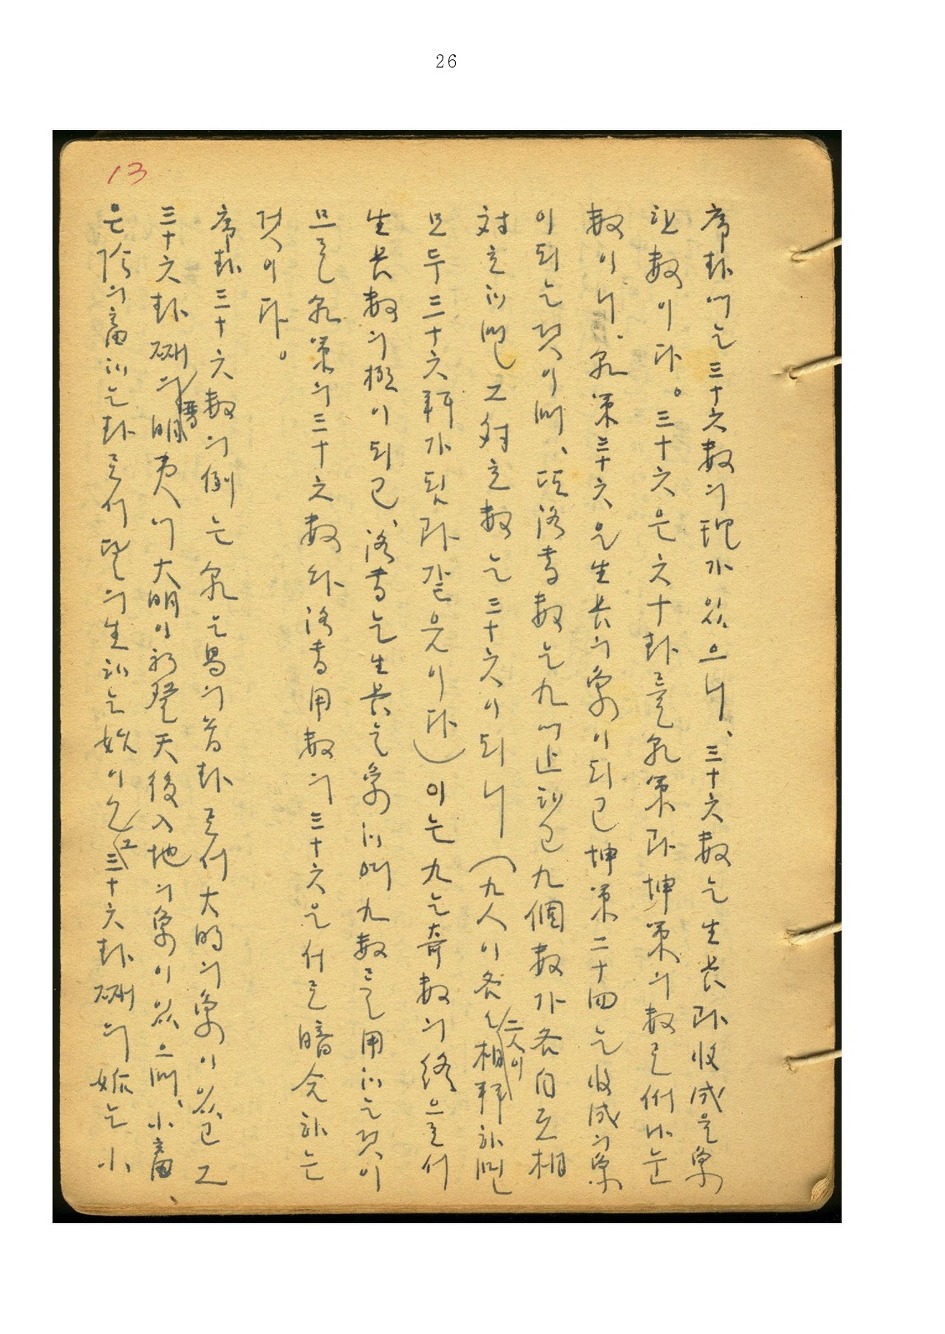 26
13
序卦에는 三十六數의 理가 있으니、三十六數는 生長과 收成을 象
한 數이다。三十六은 六十卦를 乾策과 坤策의 數로 하나눈
數이니、乾策三十六은 生長의 象이 되고 坤策二十四는 收成의 象
이 되는 것이며、또 洛書數는 九에 止하고 九個數가 各自互相
対立하며 그 対立數는 三十六이 되니 (九人이 各各 二人이 相拜하면
모두 三十六拜가 됨과 같은 것이다) 이는 九는 奇數의 終으로서
生長數의 極이 되고、洛書는 生長을 象하며 九數를 用하는 것이
므로 乾策의 三十六數와 洛書用數의 三十六은 서로 暗合하는
것이다。
序卦三十六數의 例는 乾은 易의 首卦로서 大明의 象이 있고 그
三十六卦째의 明夷에 大明이 初登天後入地의 象이 있으며、小畜
은 陰의 畜하는 卦로서 의 生하는 始이므로 三十六卦째의 姤는 小